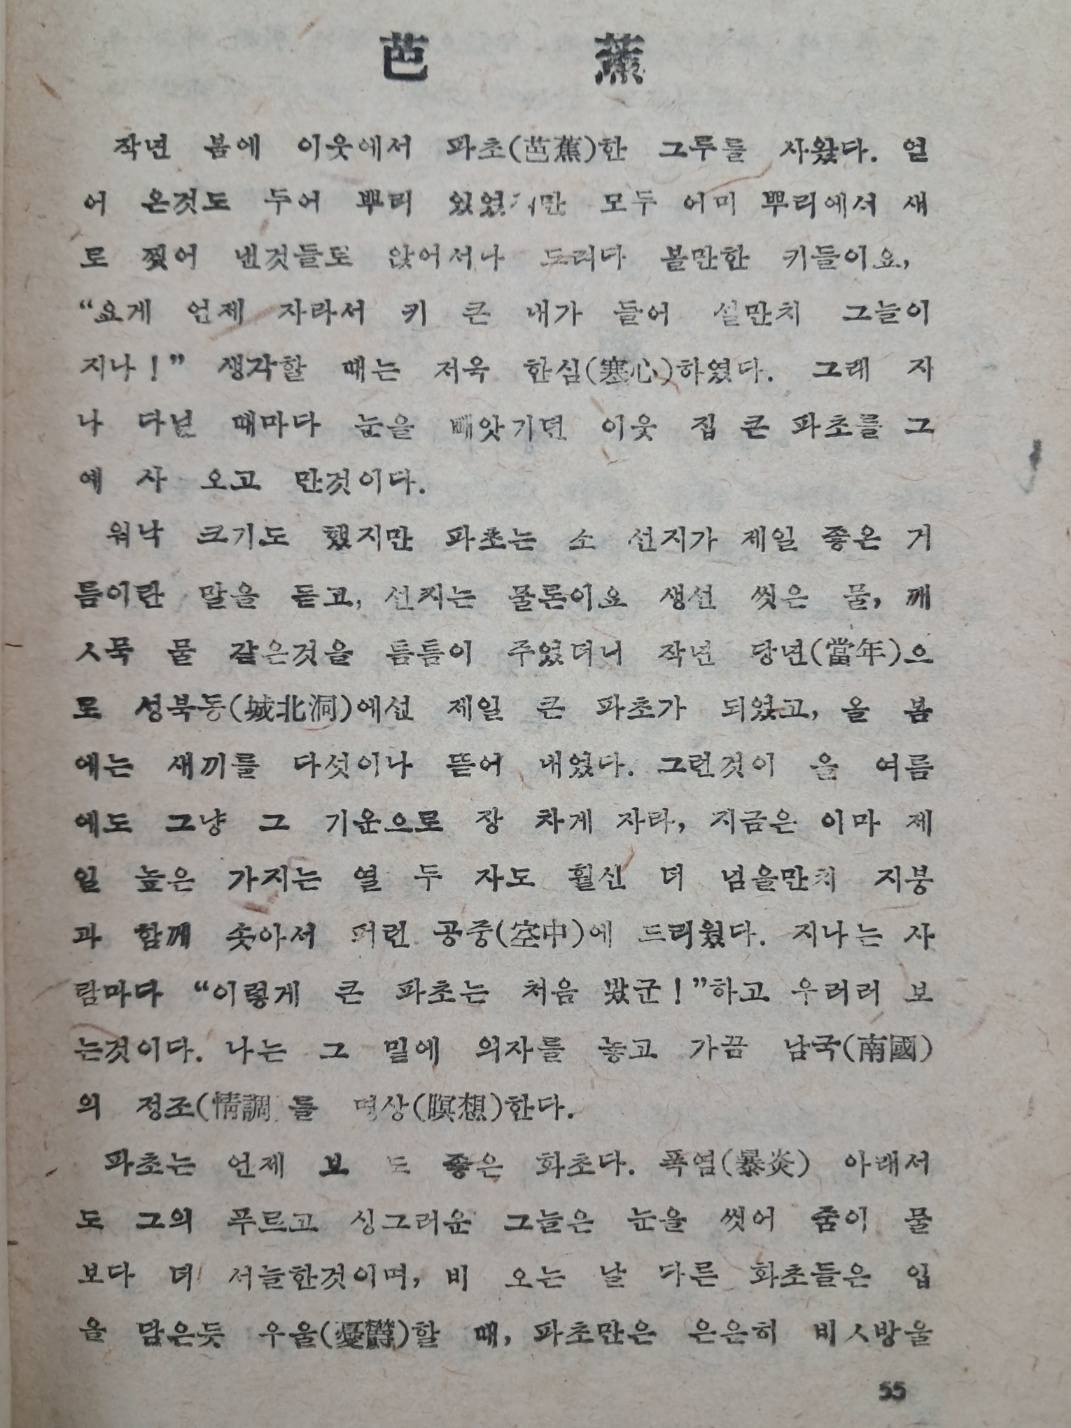 芭 蕉
작년 봄에 이웃에서 파초(芭蕉)한 그루를 사왔다. 얻
어 온것도 두어 뿌리 있었지만 모두 어미 뿌리에서 새
로 찢어 낸것들로 앉어서나 드려다 볼만한 키들이요,
“요게 언제 자라서 키 큰 내가 들어 설만치 그늘이
지나!” 생각할 때는 저윽 한심(寒心)하였다. 그래 지
나 다닐 때마다 눈을 빼앗기던 이웃 집 큰 파초를 그
예 사 오고 만것이다.
워낙 크기도 했지만 파초는 소 선지가 제일 좋은 거
름이란 말을 듣고, 선지는 물론이요 생선 씻은 물, 깨
ㅅ묵 물 같은것을 틈틈이 주었더니 작년 당년(當年)으
로 성북동(城北洞)에선 제일 큰 파초가 되었고, 올 봄
에는 새끼를 다섯이나 뜯어 내었다. 그런것이 올 여름
에도 그냥 그 기운으로 장 차게 자라, 지금은 이마 제
일 높은 가지는 열 두 자도 훨신 더 넘을만치 지붕
과 함께 솟아서 퍼런 공중(空中)에 드리웠다. 지나는 사
람마다 “이렇게 큰 파초는 처음 봤군!”하고 우러러 보
는것이다. 나는 그 밑에 의자를 놓고 가끔 남국(南國)
의 정조(情調)를 명상(瞑想)한다.
파초는 언제 보 도 좋은 화초다. 폭염(暴炎) 아래서
도 그의 푸르고 싱그러운 그늘은 눈을 씻어 줌이 물
보다 더 서늘한것이며, 비 오는 날 다른 화초들은 입
을 담은듯 우울(憂鬱)할 때, 파초만은 은은히 비ㅅ방울
55